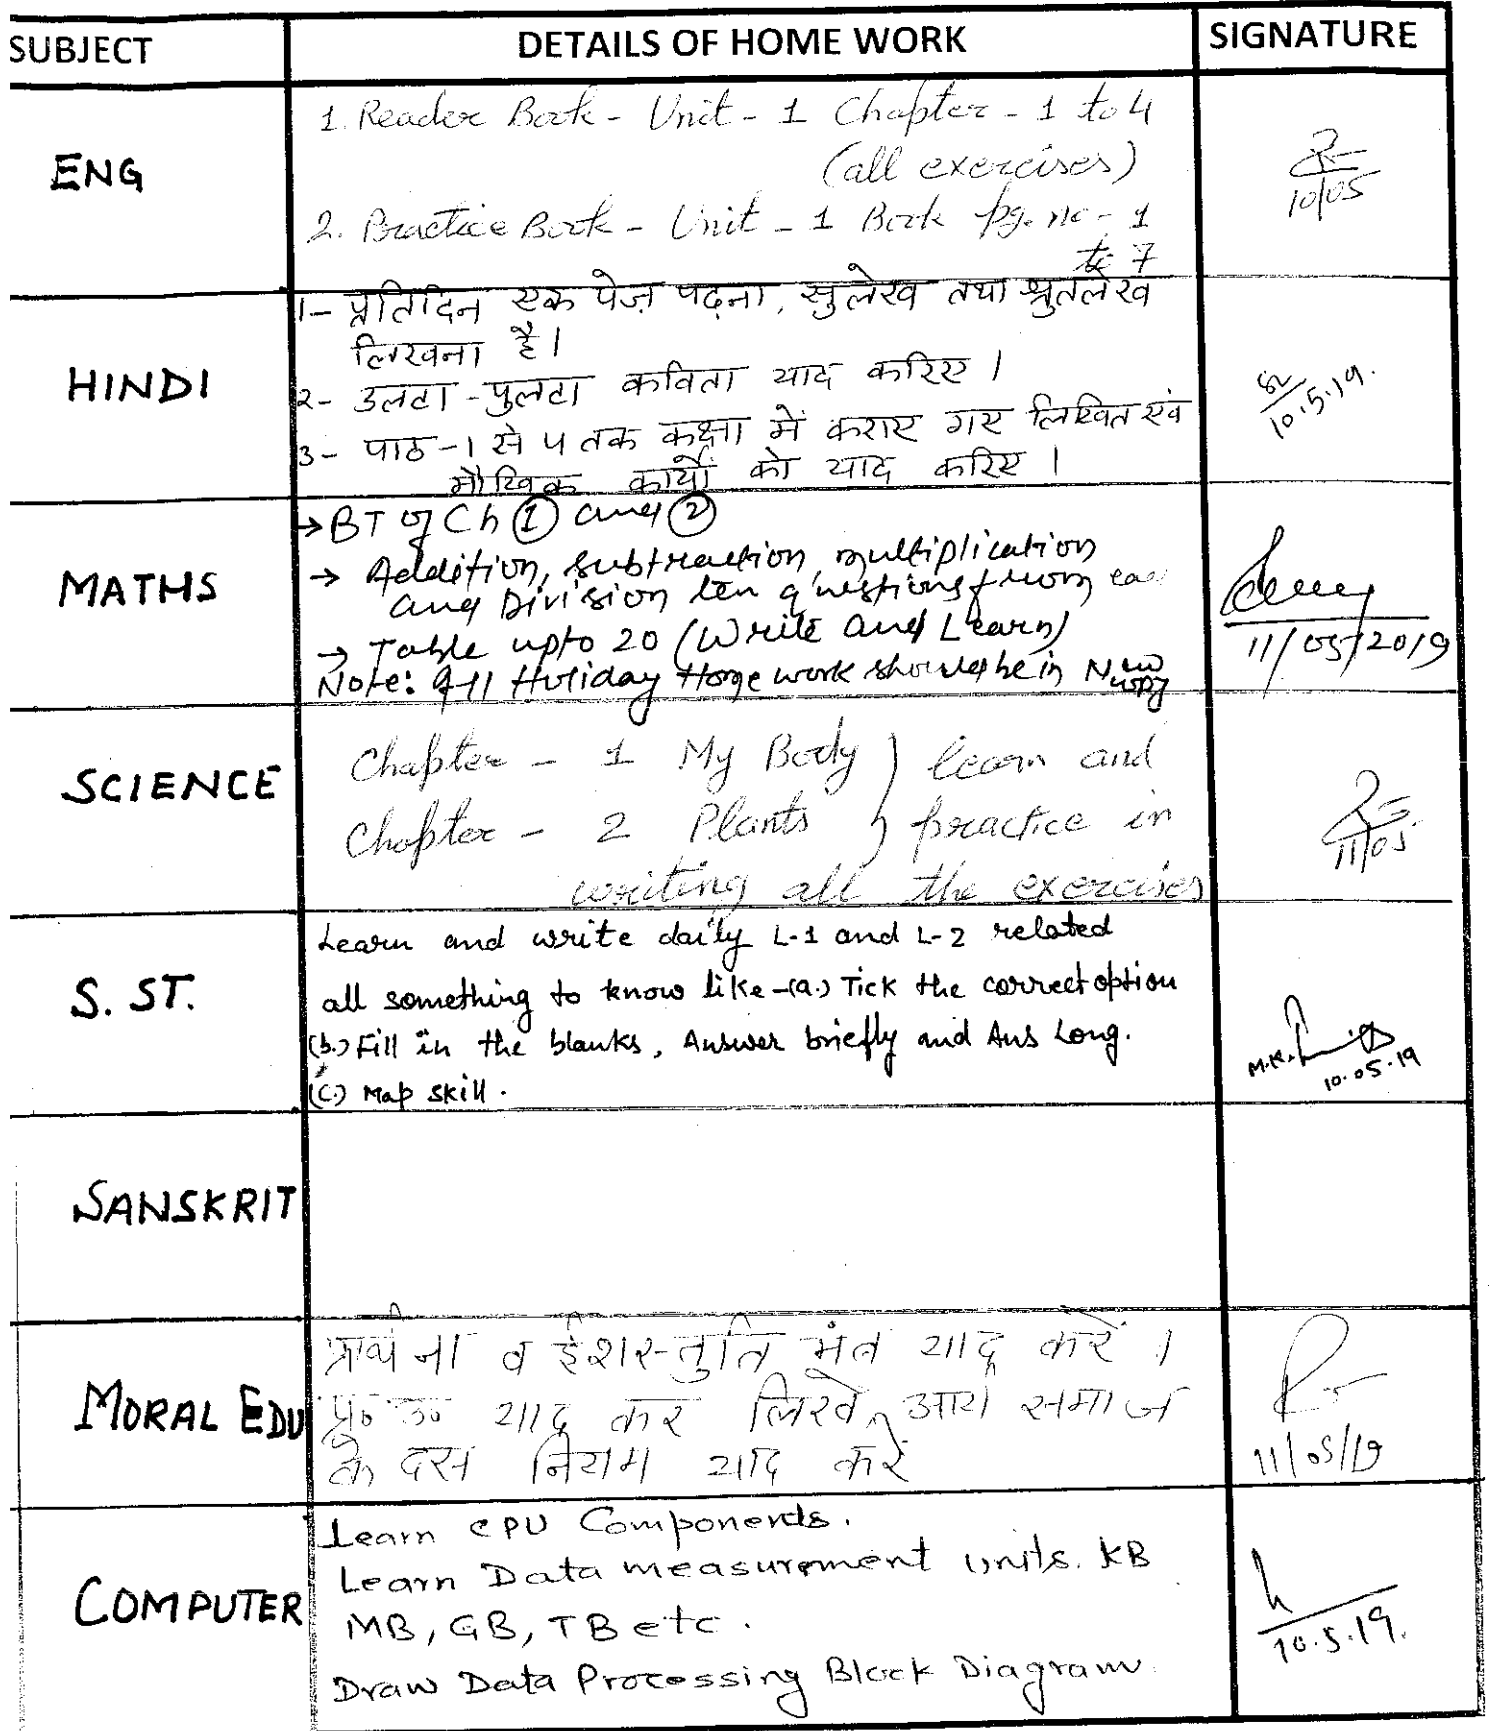 SUBJECT DETAILS OF HOME WORK SIGNATURE
ENG
1. Reader Book - Unit - 1 Chapter - 1 to 4
(all exercises)
2. Practice Book - Unit - 1 Book pg. no - 1
to 7
10/05
HINDI
1- प्रतिदिन एक पेज़ पढ़ना, सुलेख तथा श्रुतलेख
लिखना है।
२- उलटा-पुलटा कविता याद करिए।
3- पाठ-1 से 4 तक कक्षा में कराए गए लिखित एवं
मौखिक कार्यों को याद करिए।
10.5.19.
MATHS
→ BT of Ch ① and ②
→ Addition, Subtraction, multiplication
and Division ten questions from
→ Table upto 20 (Write and Learn)
Note: All Holiday Home work should be in New
copy
11/05/2019
SCIENCE
Chapter - 1 My Body } learn and
Chapter - 2 Plants } practice in
writing all the exercises
11/05
S. ST.
Learn and write daily L-1 and L-2 related
all something to know like-(a.) Tick the correct option
(b.) Fill in the blanks, Answer briefly and Ans Long.
(c.) Map skill.
10.05.19
SANSKRIT
MORAL EDU
प्रार्थना व ईशस्तुति मंत्र याद करें।
प्र० उ० याद कर लिखें, आर्य समाज
के दस नियम याद करें
11/05/19
COMPUTER
Learn CPU Components.
Learn Data measurement units. KB
MB, GB, TB etc.
Draw Data Processing Block Diagram.
10.5.19.